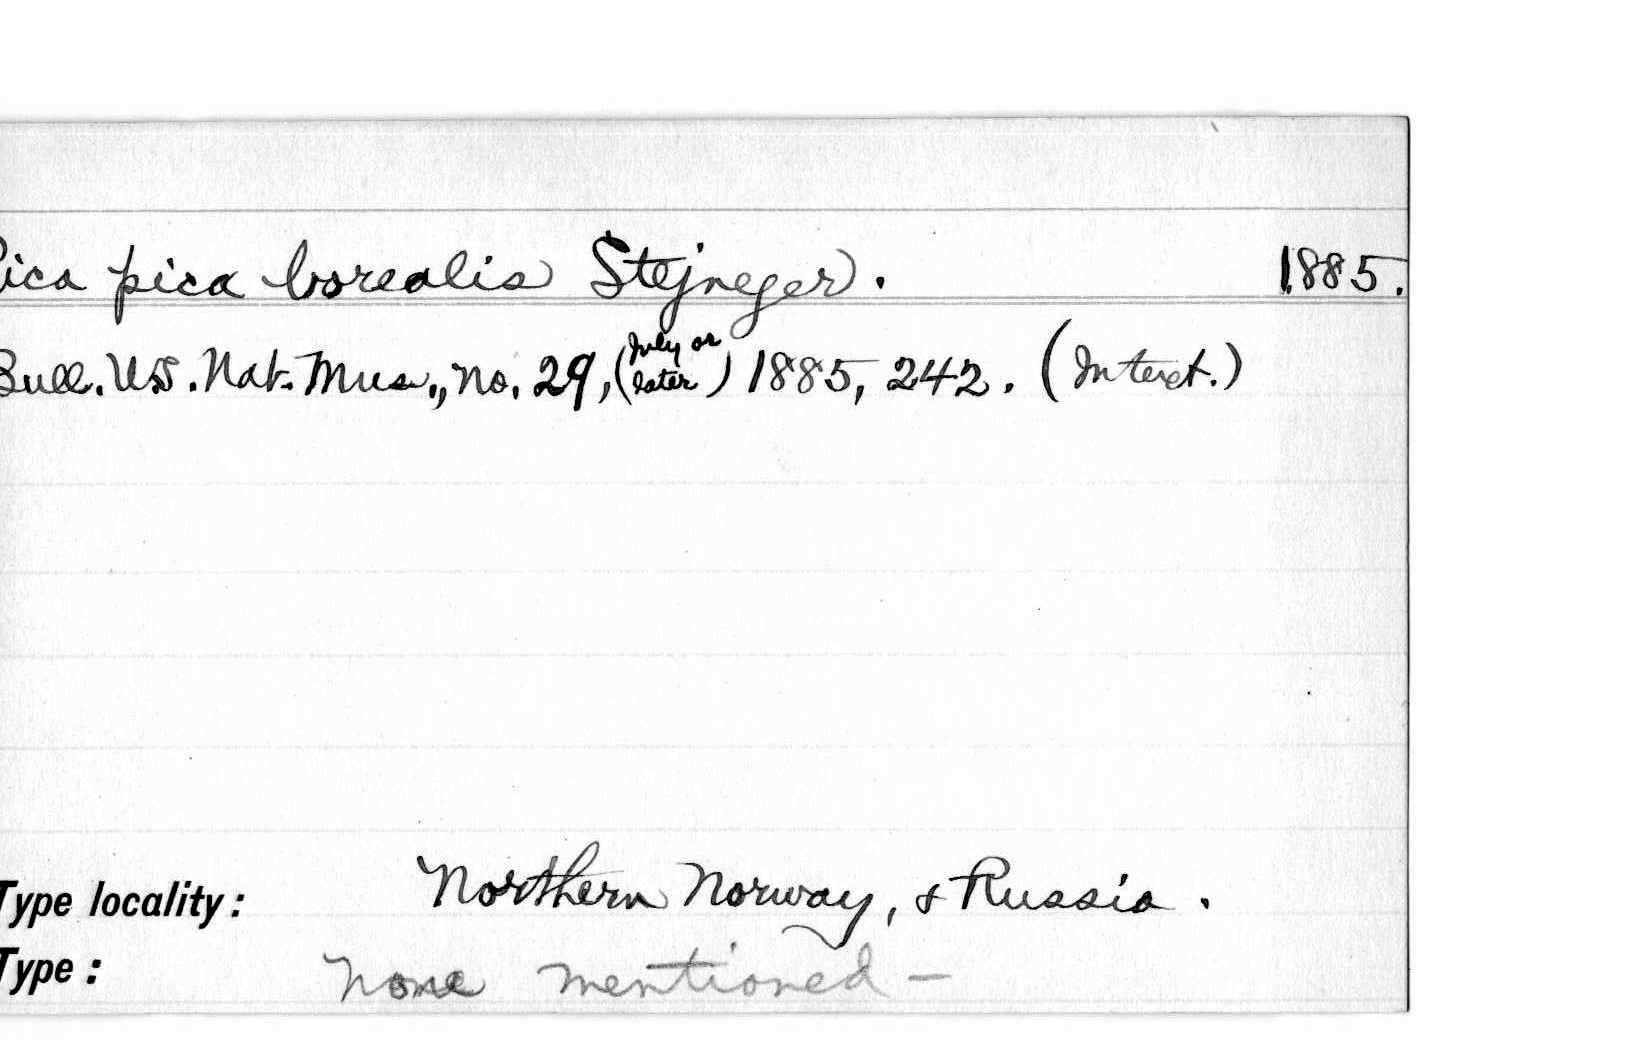 Pica pica borealis Stejneger. 1885.
Bull. U.S. Nat. Mus., no. 29, (July or later) 1885, 242. (In text.)
Type locality: Northern Norway, & Russia.
Type: None mentioned –